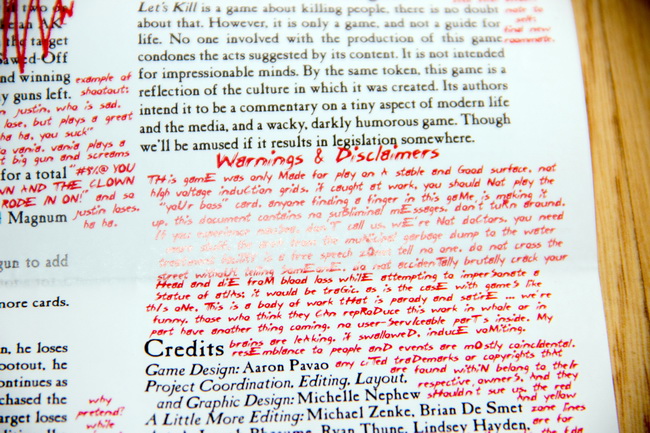 Let's Kill is a game about killing people, there is no doubt
about that. However, it is only a game, and not a guide for
life. No one involved with the production of this game
condones the acts suggested by its content. It is not intended
for impressionable minds. By the same token, this game is a
reflection of the culture in which it was created. Its authors
intend it to be a commentary on a tiny aspect of modern life
and the media, and a wacky, darkly humorous game. Though
we'll be amused if it results in legislation somewhere.
find new
roommate.
the target
Sawed-Off
and winning
guns left.
example of
shootout:
justin, who is sad.
lose, but plays a great
ha ha, you suck"
vania. vania plays a
big gun and screams
for a total "#%!@ YOU
AND THE CLOWN
RODE IN ON!" and so
Magnum justin loses.
ha ha.
gun to add
more cards.
he loses
ootout, he
continues as
chased the
arget loses
why
pretend?
while
Warnings & Disclaimers
THis gamE was only Made for play on A stable and Good surface, not
hIgh voltage inducTion grids. if caught at work, you should Not play the
"yoUr boss" card. anyone finding a finger in this gaMe is making it
up. this document contains no subliminal mEssages. don't tuRn around.
If you experience don'T call us, wE're Not doctors. you need
garbage dump to the water
is a free speech zOne. tell no one. do not cross the
street withoUt telling do not accidenTally brutally crack your
Head and diE froM blood loss whilE attempting to imperSonate a
Statue of atlAs; it would be traGic. as is the casE with gameS like
thIs oNe. This is a body of work tHat is parody and satirE ... we're
funny. those who think they CAn repRoDuce this work in whole or in
part have another thing coming. no user-ServIceable parTs inside. My
brains are leAking. if swalloweD, inducE voMiting.
Credits resEmblance to people anD events are mOstly coincIdental.
Game Design: Aaron Pavao any ciTed traDemarks or copyrights thAt
are found withiN belong to theIr
Project Coordination, Editing, Layout, respective owners. And they
and Graphic Design: Michelle Nephew sHouldn't sue us. the red
And yellow
A Little More Editing: Michael Zenke, Brian De Smet zone lines
Ryan Thune, Lindsey Hayden, are for